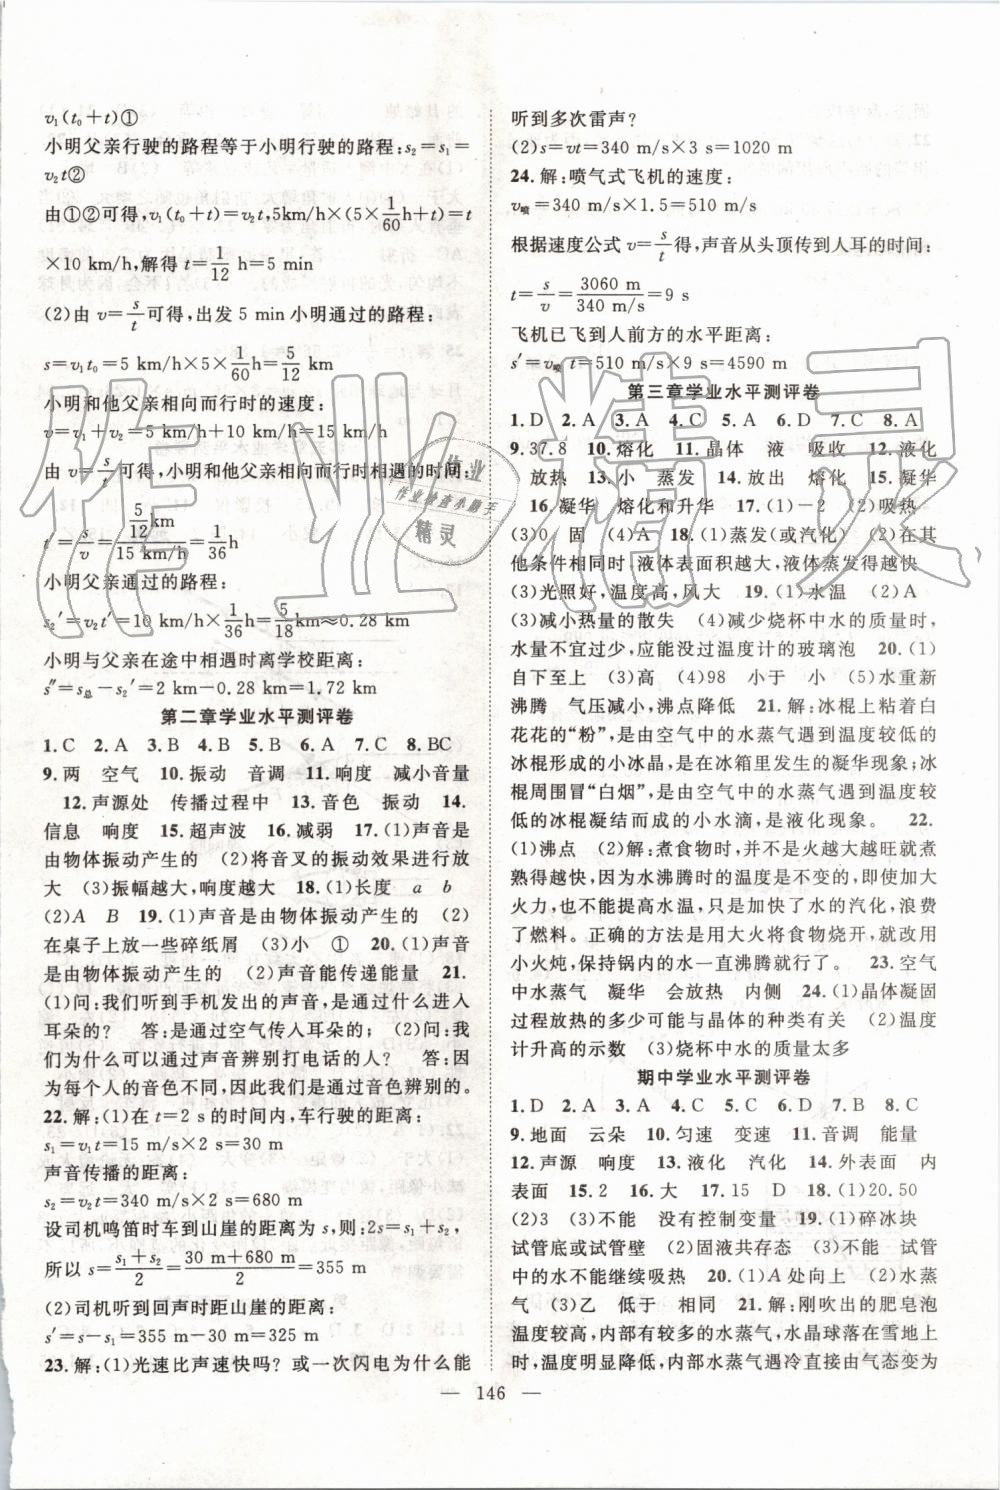 v₁(t₀＋t)①
小明父亲行驶的路程等于小明行驶的路程:s₂＝s₁＝
v₂t②
由①②可得,v₁(t₀＋t)＝v₂t,5km/h×(5×1/60h＋t)＝t
×10 km/h,解得t＝1/12 h＝5 min
(2)由 v＝s/t可得,出发 5 min小明通过的路程:
s＝v₁t₀＝5 km/h×5×1/60h＝5/12km
小明和他父亲相向而行时的速度:
v＝v₁＋v₂＝5 km/h＋10 km/h＝15 km/h
由 v＝s/t可得,小明和他父亲相向而行时相遇的时间:
t′＝s/v＝(5/12km)/(15 km/h)＝1/36h
小明父亲通过的路程:
s₂′＝v₂t′＝10 km/h×1/36h＝5/18km≈0.28 km
小明与父亲在途中相遇时离学校距离:
s″＝s总－s₂′＝2 km－0.28 km＝1.72 km
第二章学业水平测评卷
1.C 2.A 3.B 4.B 5.B 6.A 7.C 8.BC
9.两 空气 10.振动 音调 11.响度 减小音量
12.声源处 传播过程中 13.音色 振动 14.
信息 响度 15.超声波 16.减弱 17.(1)声音是
由物体振动产生的 (2)将音叉的振动效果进行放
大 (3)振幅越大,响度越大 18.(1)长度 a b
(2)A B 19.(1)声音是由物体振动产生的 (2)
在桌子上放一些碎纸屑 (3)小 ① 20.(1)声音
是由物体振动产生的 (2)声音能传递能量 21.
(1)问:我们听到手机发出的声音,是通过什么进入
耳朵的? 答:是通过空气传入耳朵的;(2)问:我
们为什么可以通过声音辨别打电话的人? 答:因
为每个人的音色不同,因此我们是通过音色辨别的。
22.解:(1)在t＝2 s的时间内,车行驶的距离:
s₁＝v₁t＝15 m/s×2 s＝30 m
声音传播的距离:
s₂＝v₂t＝340 m/s×2 s＝680 m
设司机鸣笛时车到山崖的距离为s,则:2s＝s₁＋s₂,
所以 s＝(s₁＋s₂)/2＝(30 m＋680 m)/2＝355 m
(2)司机听到回声时距山崖的距离:
s′＝s－s₁＝355 m－30 m＝325 m
23.解:(1)光速比声速快吗? 或一次闪电为什么能
听到多次雷声?
(2)s＝vt＝340 m/s×3 s＝1020 m
24.解:喷气式飞机的速度:
v喷＝340 m/s×1.5＝510 m/s
根据速度公式 v＝s/t得,声音从头顶传到人耳的时间:
t＝s/v＝3060 m/340 m/s＝9 s
飞机已飞到人前方的水平距离:
s′＝v喷 t＝510 m/s×9 s＝4590 m
第三章学业水平测评卷
1.D 2.A 3.A 4.C 5.A 6.D 7.C 8.A
9.37.8 10.熔化 11.晶体 液 吸收 12.液化
放热 13.小 蒸发 14.放出 熔化 15.凝华
16.凝华 熔化和升华 17.(1)-2 (2)吸热
(3)0 固 (4)A 18.(1)蒸发(或汽化) (2)在其
他条件相同时,液体表面积越大,液体蒸发得越快
(3)光照好,温度高,风大 19.(1)水温 (2)A
(3)减小热量的散失 (4)减少烧杯中水的质量时,
水量不宜过少,应能没过温度计的玻璃泡 20.(1)
自下而上 (3)高 (4)98 小于 小 (5)水重新
沸腾 气压减小,沸点降低 21.解:冰棍上粘着白
花花的“粉”,是由空气中的水蒸气遇到温度较低的
冰棍形成的小冰晶,是在冰箱里发生的凝华现象;冰
棍周围冒“白烟”,是由空气中的水蒸气遇到温度较
低的冰棍凝结而成的小水滴,是液化现象。 22.
(1)沸点 (2)解:煮食物时,并不是火越大越旺就煮
熟得越快,因为水沸腾时的温度是不变的,即使加大
火力,也不能提高水温,只是加快了水的汽化,浪费
了燃料。正确的方法是用大火将食物烧开,就改用
小火炖,保持锅内的水一直沸腾就行了。 23.空气
中水蒸气 凝华 会放热 内侧 24.(1)晶体凝固
过程放热的多少可能与晶体的种类有关 (2)温度
计升高的示数 (3)烧杯中水的质量太多
期中学业水平测评卷
1.D 2.A 3.A 4.C 5.D 6.A 7.B 8.C
9.地面 云朵 10.匀速 变速 11.音调 能量
12.声源 响度 13.液化 汽化 14.外表面 内
表面 15.2 16.大 17.15 D 18.(1)20.50
(2)3 (3)不能 没有控制变量 19.(1)碎冰块
试管底或试管壁 (2)固液共存态 (3)不能 试管
中的水不能继续吸热 20.(1)A处向上 (2)水蒸
气 (3)乙 低于 相同 21.解:刚吹出的肥皂泡
温度较高,内部有较多的水蒸气,水晶球落在雪地上
时,温度明显降低,内部水蒸气遇冷直接由气态变为
— 146 —
作业精灵
作业
作业检查小助手
精灵